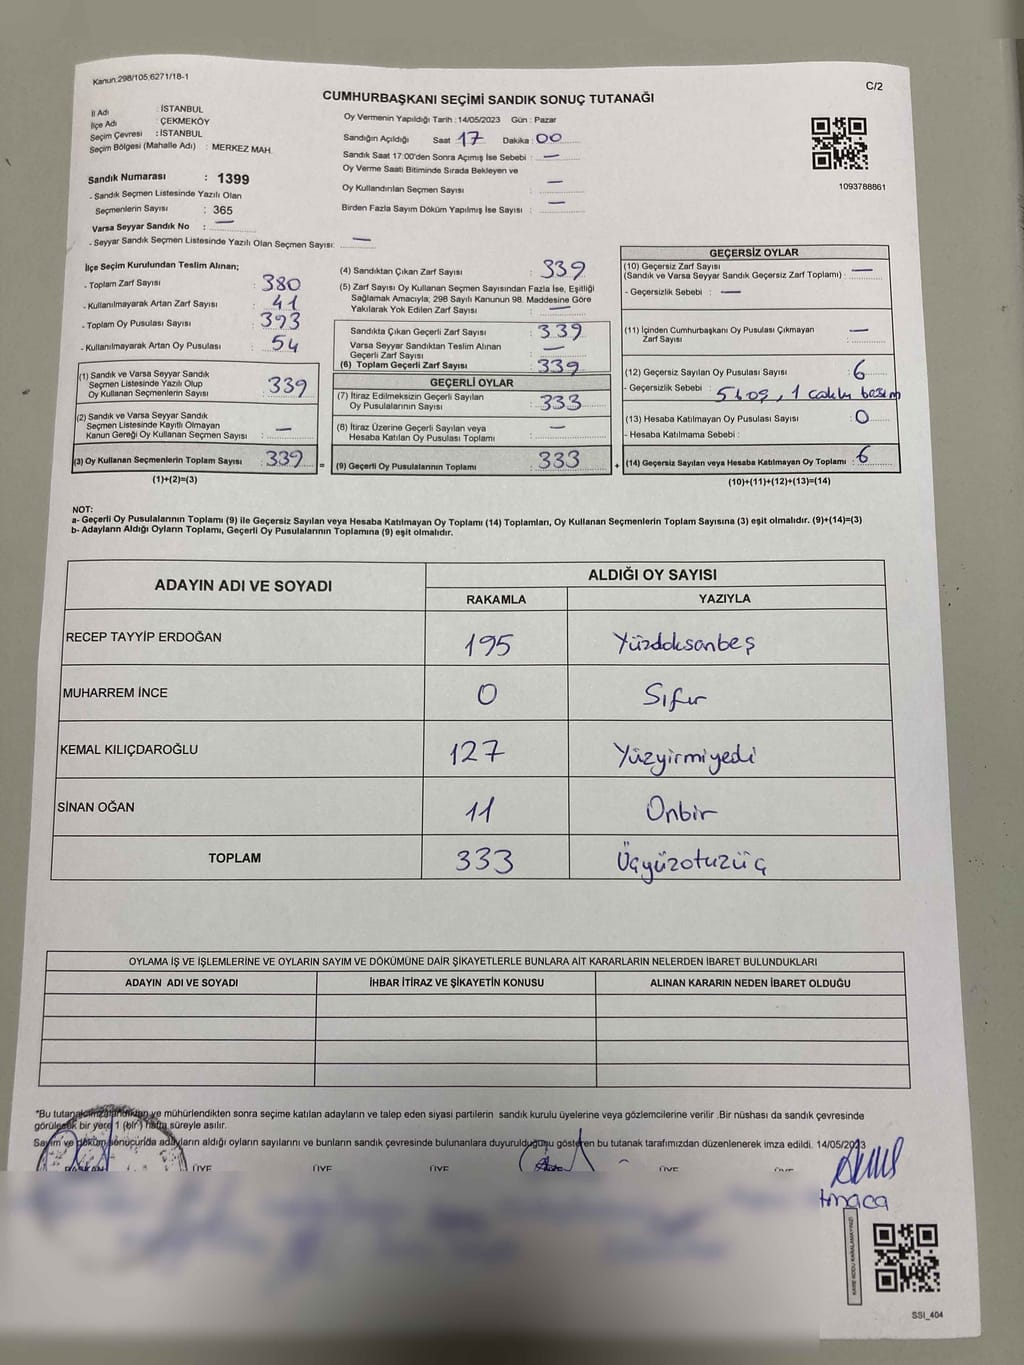 Kanun:298/105,6271/18-1
C/2
CUMHURBAŞKANI SEÇİMİ SANDIK SONUÇ TUTANAĞI
İl Adı : İSTANBUL
İlçe Adı : ÇEKMEKÖY
Seçim Çevresi : İSTANBUL
Seçim Bölgesi (Mahalle Adı) : MERKEZ MAH.
Sandık Numarası : 1399
- Sandık Seçmen Listesinde Yazılı Olan
Seçmenlerin Sayısı : 365
Varsa Seyyar Sandık No : —
- Seyyar Sandık Seçmen Listesinde Yazılı Olan Seçmen Sayısı: —
Oy Vermenin Yapıldığı Tarih : 14/05/2023 Gün : Pazar
Sandığın Açıldığı Saat 17 Dakika : 00
Sandık Saat 17:00'den Sonra Açımış İse Sebebi : —
Oy Verme Saati Bitiminde Sırada Bekleyen ve
Oy Kullandırılan Seçmen Sayısı : —
Birden Fazla Sayım Döküm Yapılmış İse Sayısı : —
1093788861
İlçe Seçim Kurulundan Teslim Alınan;
- Toplam Zarf Sayısı : 380
- Kullanılmayarak Artan Zarf Sayısı : 41
- Toplam Oy Pusulası Sayısı : 393
- Kullanılmayarak Artan Oy Pusulası : 54
(1) Sandık ve Varsa Seyyar Sandık
Seçmen Listesinde Yazılı Olup
Oy Kullanan Seçmenlerin Sayısı : 339
(2) Sandık ve Varsa Seyyar Sandık
Seçmen Listesinde Kayıtlı Olmayan
Kanun Gereği Oy Kullanan Seçmen Sayısı : —
(3) Oy Kullanan Seçmenlerin Toplam Sayısı : 339 =
(1)+(2)=(3)
(4) Sandıktan Çıkan Zarf Sayısı : 339
(5) Zarf Sayısı Oy Kullanan Seçmen Sayısından Fazla İse, Eşitliği
Sağlamak Amacıyla; 298 Sayılı Kanunun 98. Maddesine Göre
Yakılarak Yok Edilen Zarf Sayısı : —
Sandıkta Çıkan Geçerli Zarf Sayısı : 339
Varsa Seyyar Sandıktan Teslim Alınan
Geçerli Zarf Sayısı : —
(6) Toplam Geçerli Zarf Sayısı : 339
GEÇERLİ OYLAR
(7) İtiraz Edilmeksizin Geçerli Sayılan
Oy Pusulalarının Sayısı : 333
(8) İtiraz Üzerine Geçerli Sayılan veya
Hesaba Katılan Oy Pusulası Toplamı : —
(9) Geçerli Oy Pusulalarının Toplamı : 333 +
GEÇERSİZ OYLAR
(10) Geçersiz Zarf Sayısı
(Sandık ve Varsa Seyyar Sandık Geçersiz Zarf Toplamı) : —
- Geçersizlik Sebebi : —
(11) İçinden Cumhurbaşkanı Oy Pusulası Çıkmayan
Zarf Sayısı : —
(12) Geçersiz Sayılan Oy Pusulası Sayısı : 6
- Geçersizlik Sebebi : 5 boş, 1 basım
(13) Hesaba Katılmayan Oy Pusulası Sayısı : 0
- Hesaba Katılmama Sebebi :
(14) Geçersiz Sayılan veya Hesaba Katılmayan Oy Toplamı : 6
(10)+(11)+(12)+(13)=(14)
NOT:
a- Geçerli Oy Pusulalarının Toplamı (9) ile Geçersiz Sayılan veya Hesaba Katılmayan Oy Toplamı (14) Toplamları, Oy Kullanan Seçmenlerin Toplam Sayısına (3) eşit olmalıdır. (9)+(14)=(3)
b- Adayların Aldığı Oyların Toplamı, Geçerli Oy Pusulalarının Toplamına (9) eşit olmalıdır.
ADAYIN ADI VE SOYADI ALDIĞI OY SAYISI
RAKAMLA YAZIYLA
RECEP TAYYİP ERDOĞAN 195 Yüzdoksanbeş
MUHARREM İNCE 0 Sıfır
KEMAL KILIÇDAROĞLU 127 Yüzyirmiyedi
SİNAN OĞAN 11 Onbir
TOPLAM 333 Üçyüzotuzüç
OYLAMA İŞ VE İŞLEMLERİNE VE OYLARIN SAYIM VE DÖKÜMÜNE DAİR ŞİKAYETLERLE BUNLARA AİT KARARLARIN NELERDEN İBARET BULUNDUKLARI
ADAYIN ADI VE SOYADI İHBAR İTİRAZ VE ŞİKAYETİN KONUSU ALINAN KARARIN NEDEN İBARET OLDUĞU
"Bu tutanak imzalandıktan ve mühürlendikten sonra seçime katılan adayların ve talep eden siyasi partilerin sandık kurulu üyelerine veya gözlemcilerine verilir .Bir nüshası da sandık çevresinde
görülecek bir yere 1 (bir) hafta süreyle asılır.
Sayım ve döküm sonucunda adayların aldığı oyların sayılarını ve bunların sandık çevresinde bulunanlara duyurulduğunu gösteren bu tutanak tarafımızdan düzenlenerek imza edildi. 14/05/2023
BAŞKAN ÜYE ÜYE ÜYE ÜYE ÜYE
SSI_404